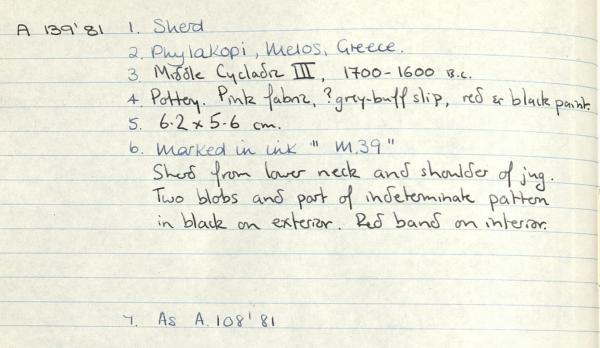 A 139'81 1. Sherd
2. Phylakopi, Melos, Greece.
3. Middle Cycladic III, 1700-1600 B.C.
4. Pottery. Pink fabric, ?grey-buff slip, red & black paint.
5. 6.2 x 5.6 cm.
6. Marked in ink "M.39"
Sherd from lower neck and shoulder of jug.
Two blobs and part of indeterminate pattern
in black on exterior. Red band on interior.
7. As A.108'81